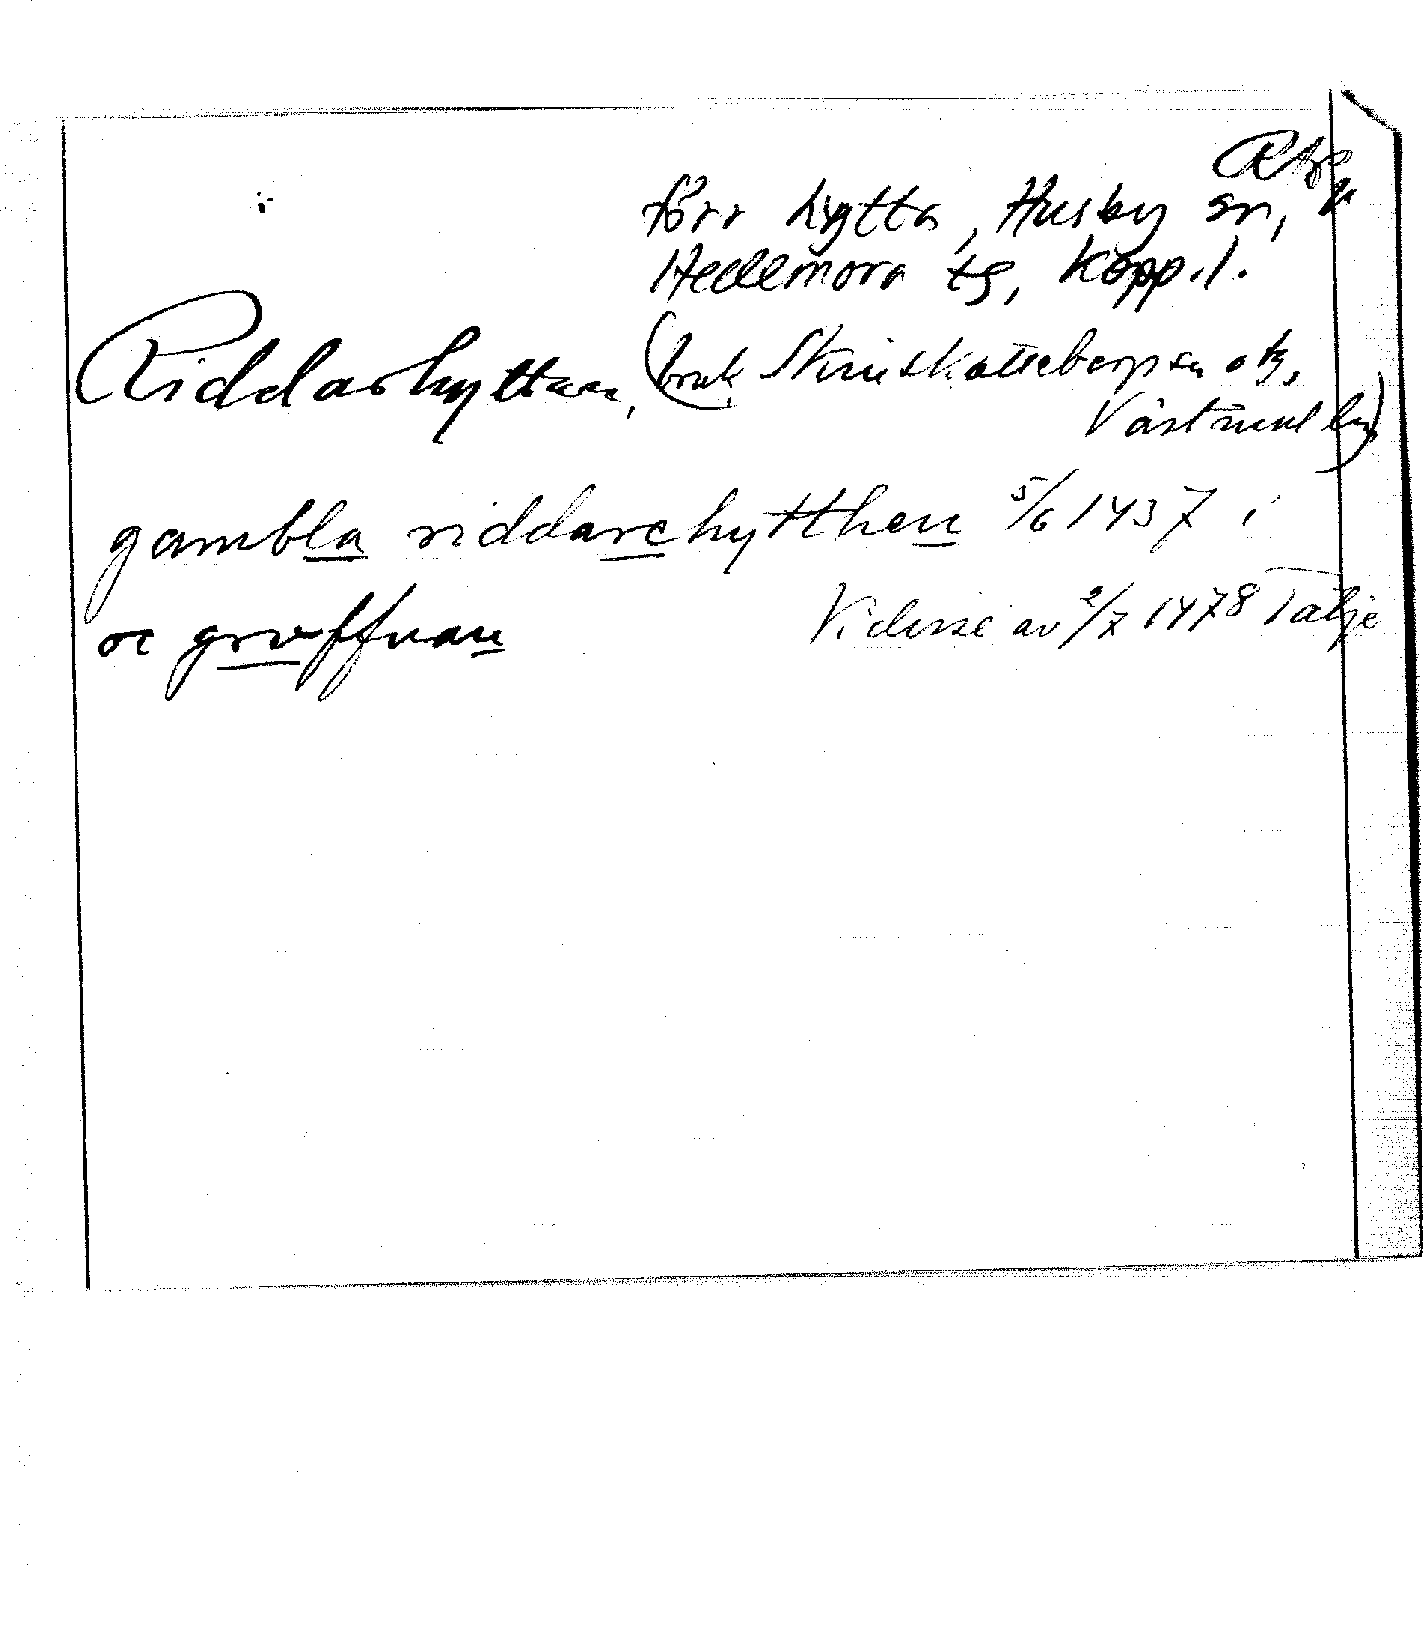 förr hytta, Husby sn,
Hedemora tg, Kopp.l.
Riddarhyttan, (bruk, Skinnskattebergs sn o tg,
Västmanl län)
gambla riddarehytthen 5/6 1437 i
oc gruffuan Vidisse av 2/7 1478 Tälje